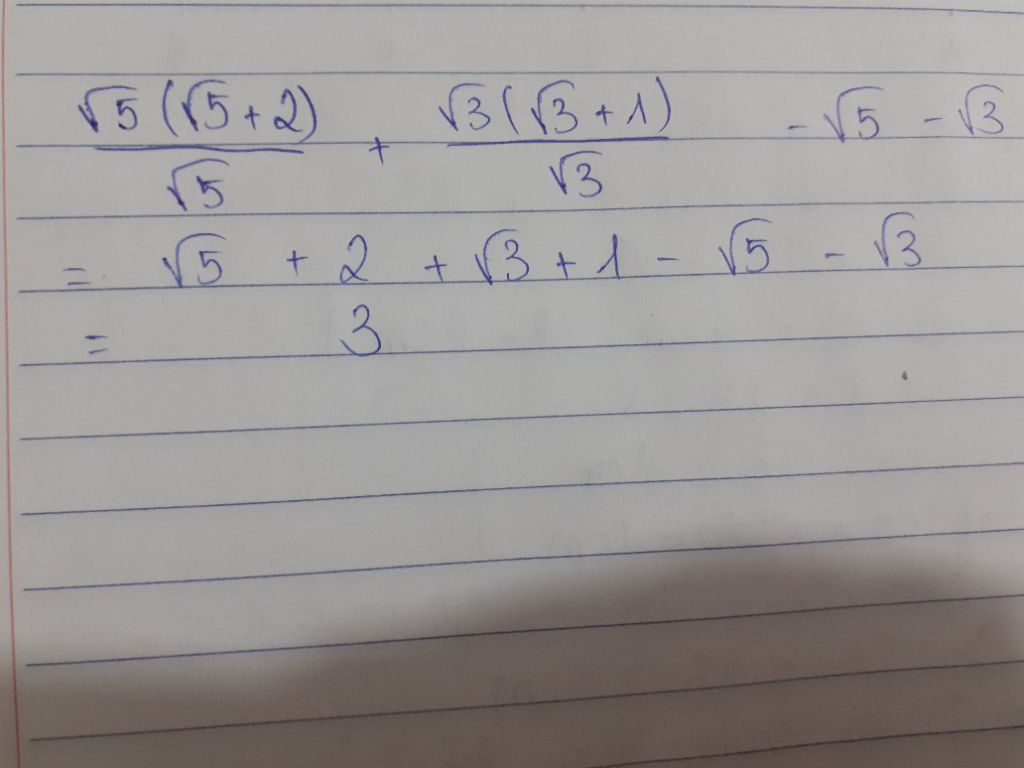 √5(√5+2)/√5 + √3(√3+1)/√3 - √5 - √3
= √5 + 2 + √3 + 1 - √5 - √3
= 3